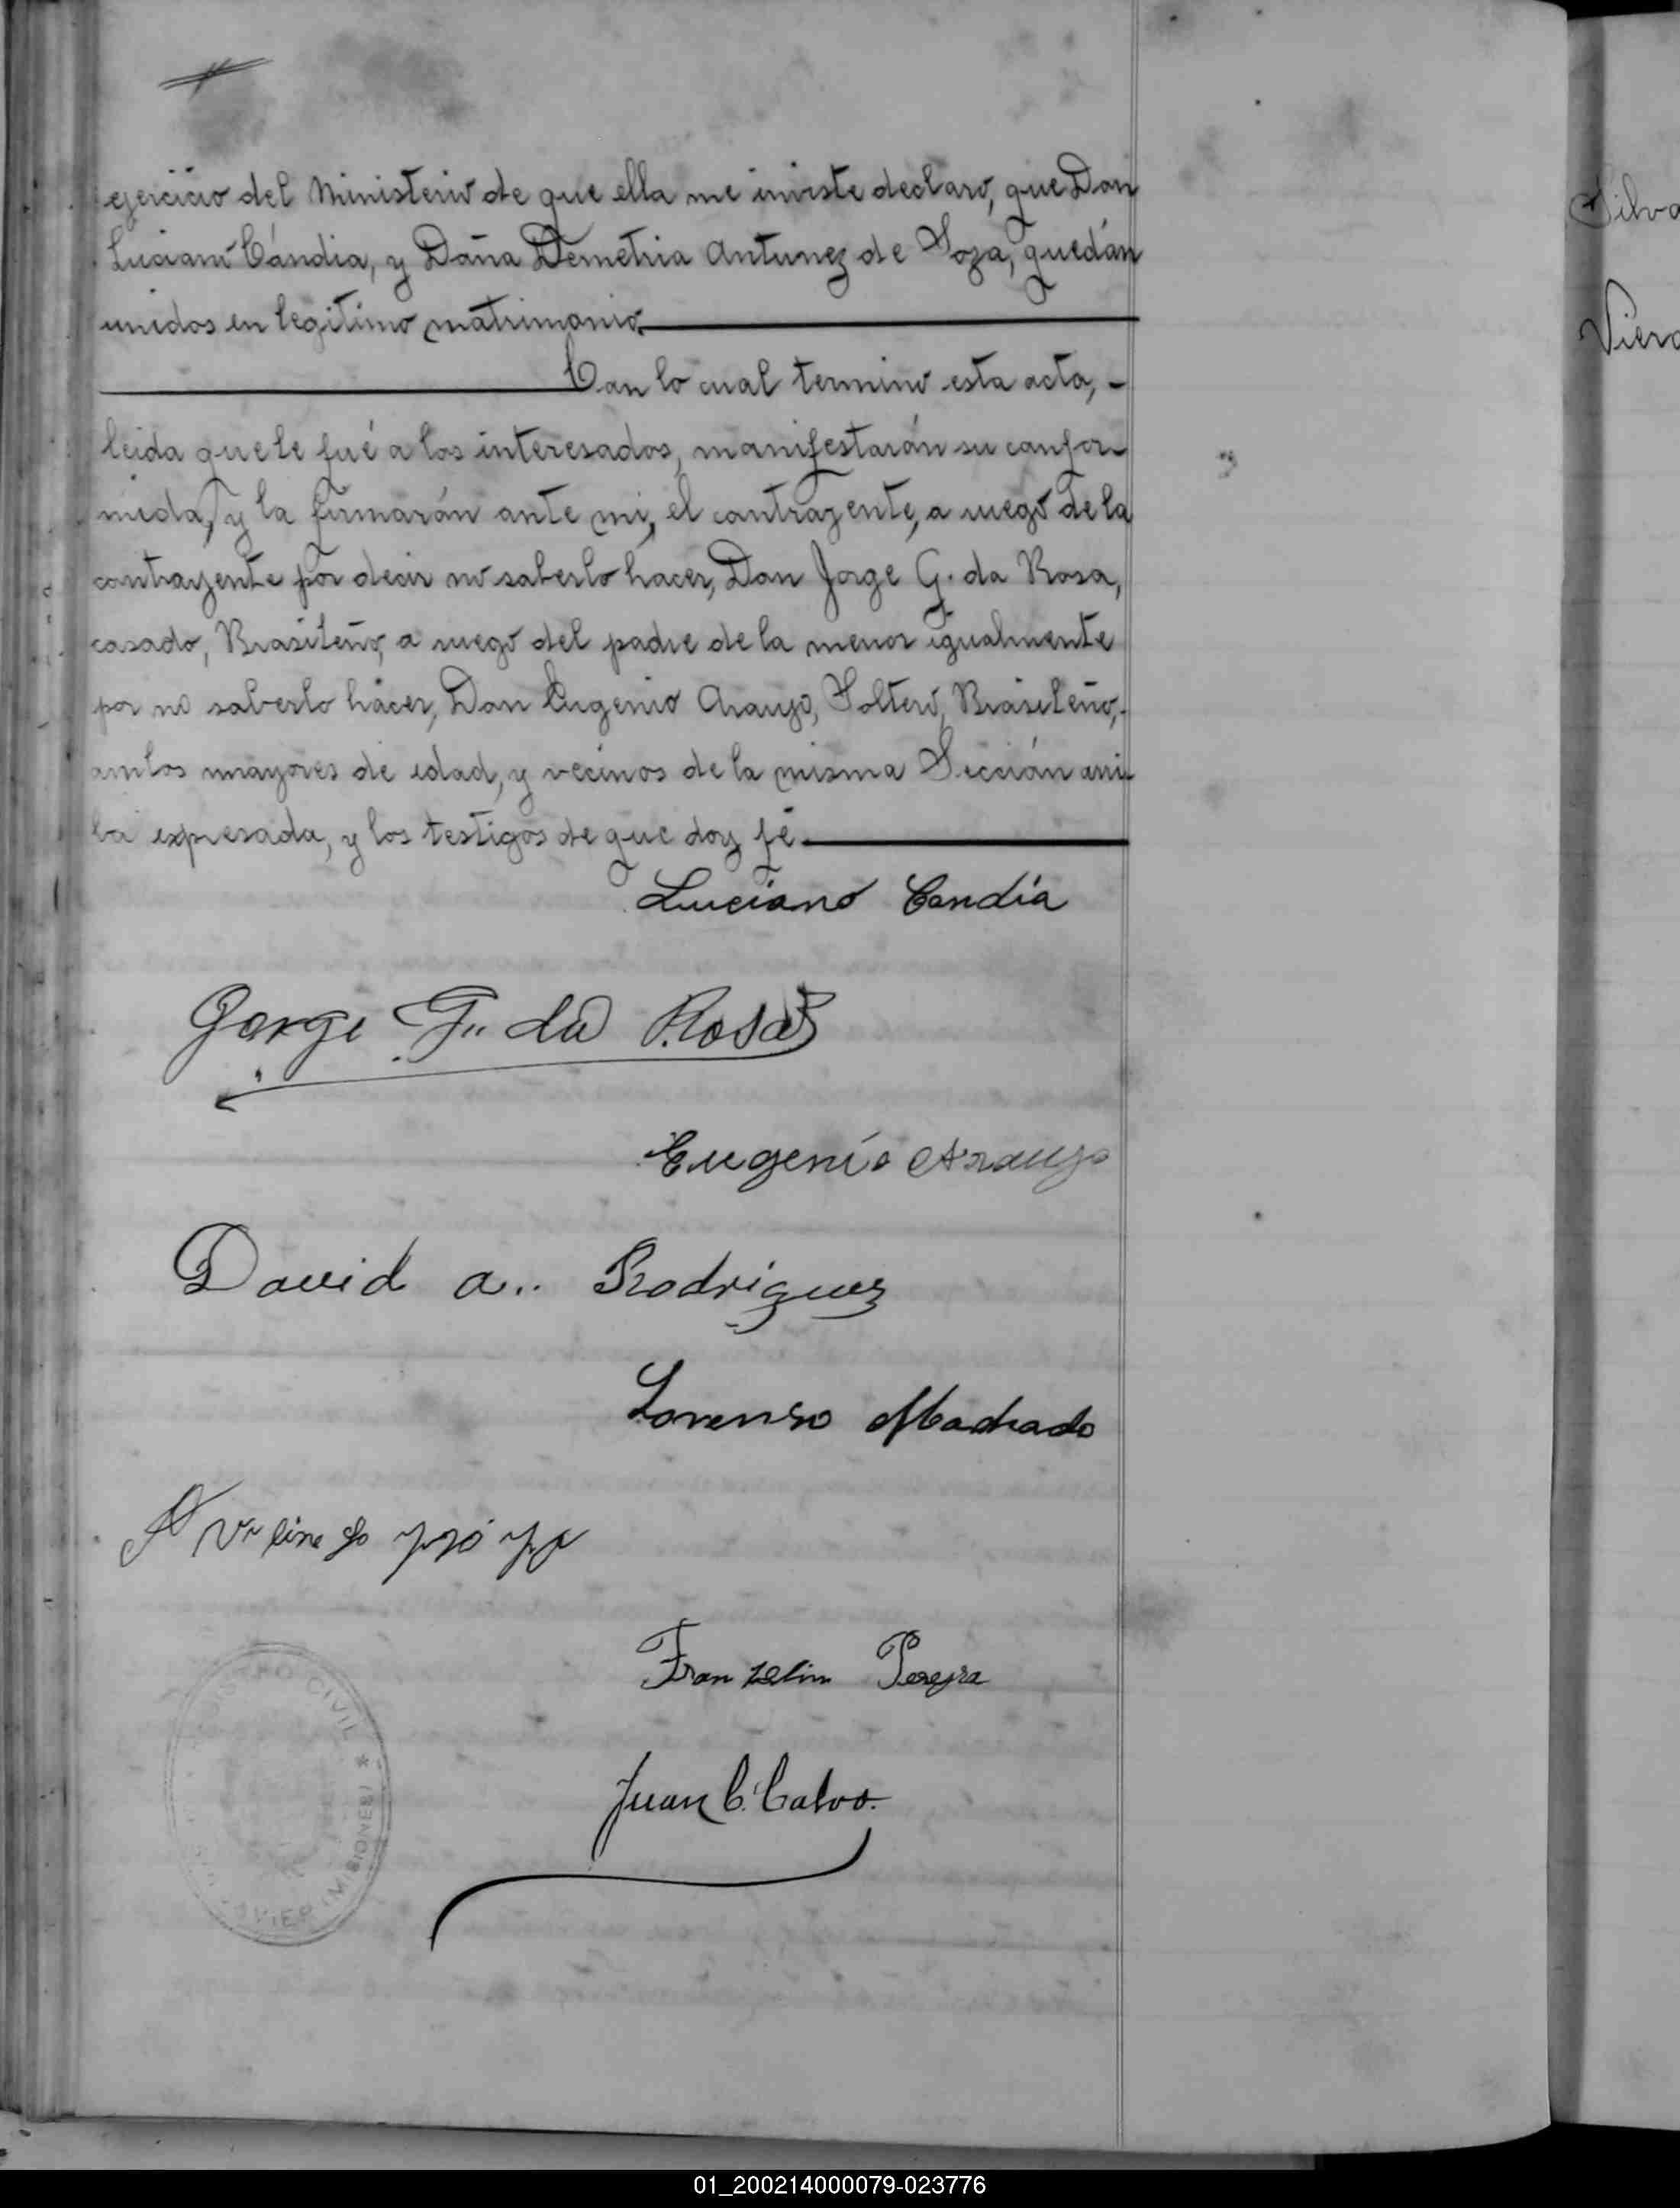 ejercicio del Ministerio de que ella me inviste declaro, que Don
Luciano Cándia, y Doña Demetria Antunez de Soza, quedán
unidos en legitimo matrimonio
Con lo cual termino esta acta, -
leida que le fué a los interesados, manifestarán su confor-
mida, y la firmarán ante mi, el contrayente, a ruego de la
contrayente por decir no saberlo hacer, Don Jorge G. da Rosa,
casado, Brasileño, a ruego del padre de la menor igualmente
por no saberlo hácer, Don Eugenio Araujo, Soltero, Brasileño, -
ambos mayores de edad, y vecinos de la misma Sección arri-
ba expresada, y los testigos de que doy fé
Luciano Candia
Jorge G. da Rosa
Eugenio Araujo
David A. Rodriguez
Lorenso Machado
Franzelin Pereyra
Juan C. Calvo.
CIVIL * (MISIONES)
Silva
Viera
01_200214000079-023776